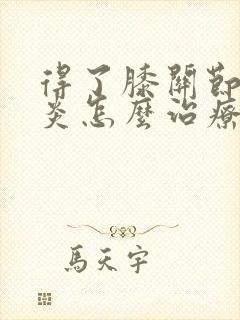 得了膝關節
炎怎麼治療
馬天宇